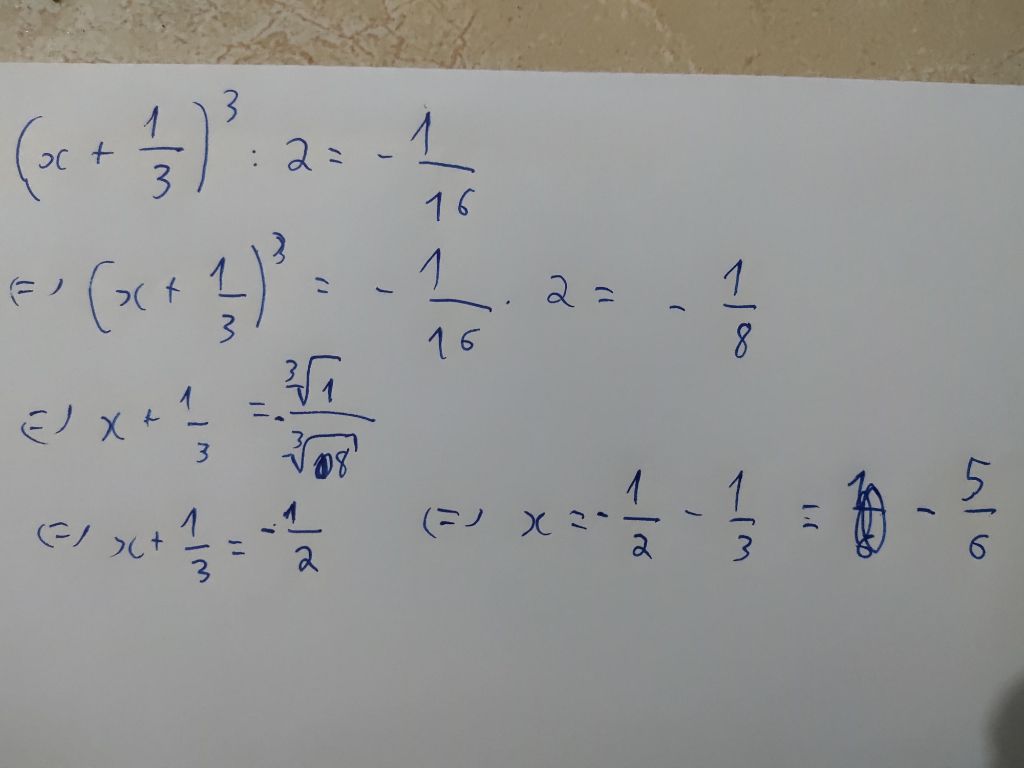 (x + 1/3)³ : 2 = - 1/16
(=) (x + 1/3)³ = - 1/16 . 2 = - 1/8
(=) x + 1/3 = - ³√1/³√8
(=) x + 1/3 = - 1/2 (=) x = - 1/2 - 1/3 = - 5/6